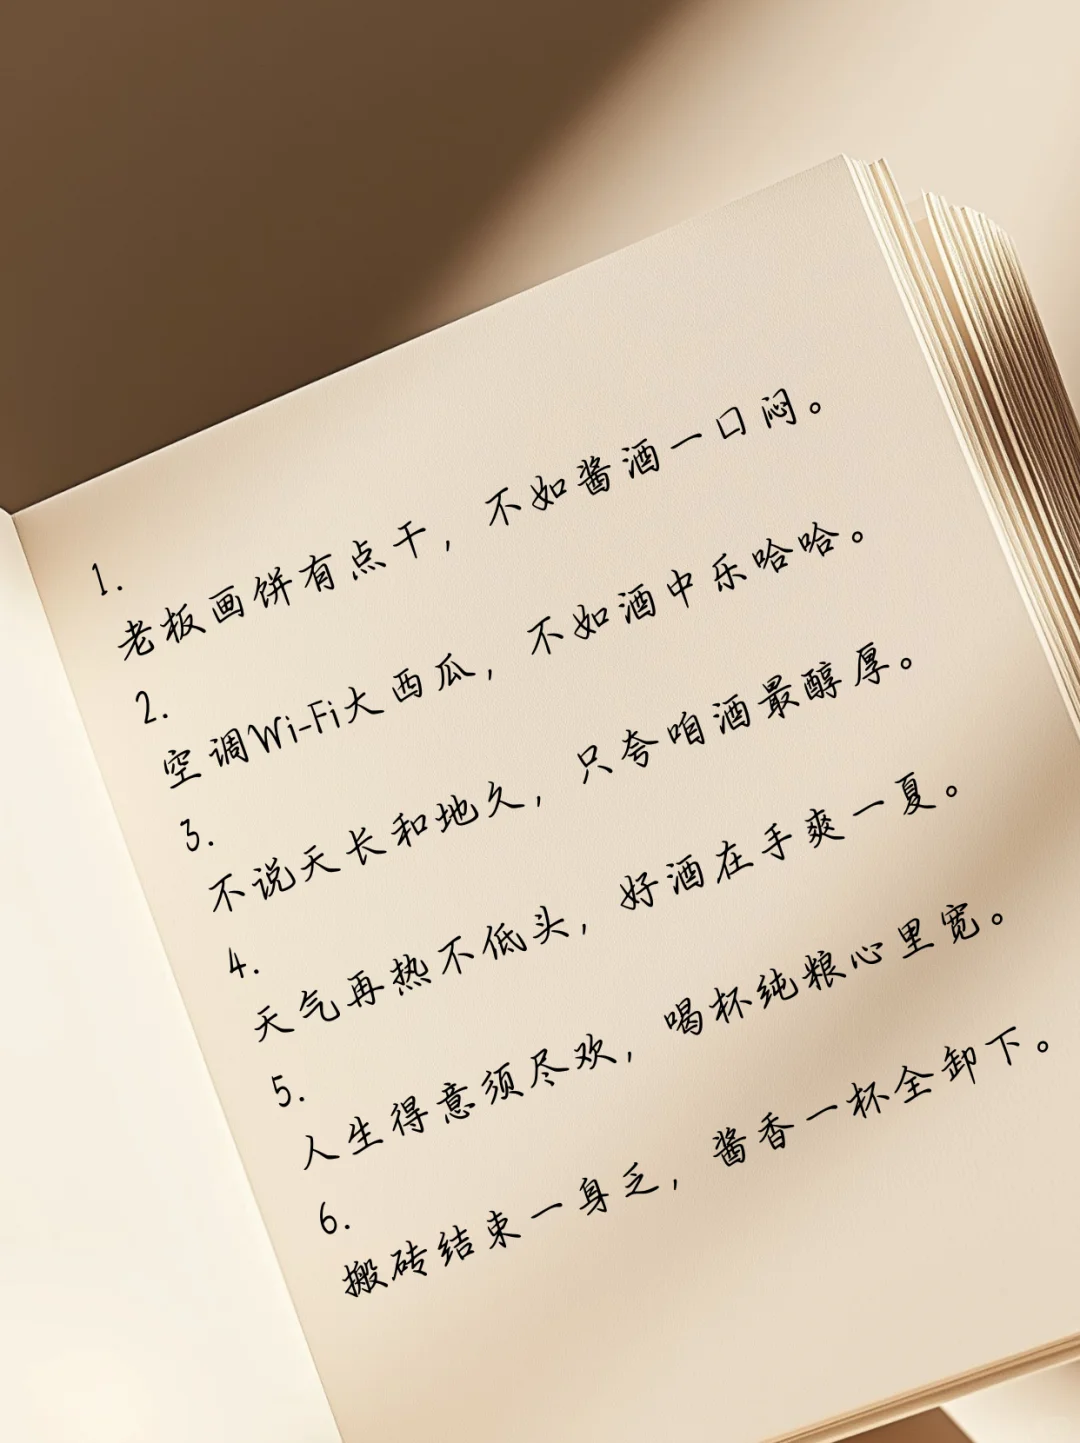 1.
老板画饼有点干，不如酱酒一口闷。
2.
空调Wi-Fi大西瓜，不如酒中乐哈哈。
3.
不说天长和地久，只夸咱酒最醇厚。
4.
天气再热不低头，好酒在手爽一夏。
5.
人生得意须尽欢，喝杯纯粮心里宽。
6.
搬砖结束一身乏，酱香一杯全卸下。